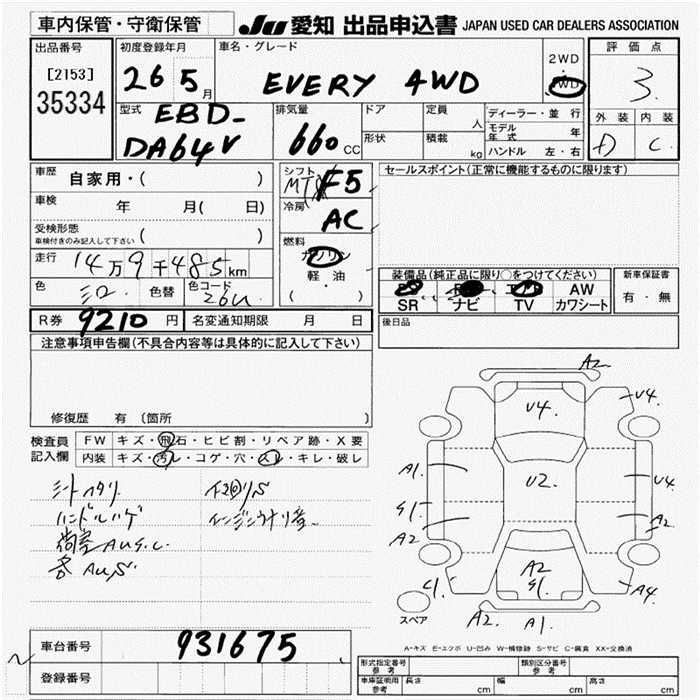 車内保管・守衛保管 JU 愛知 出品申込書 JAPAN USED CAR DEALERS ASSOCIATION
出品番号
[2153]
35334
初度登録年月
26 5 月
車名・グレード
EVERY 4WD
2WD
・
4WD
評価点
3.
外装 内装
D C
型式
EBD-
DA64V
排気量
660 CC
ドア
形状
定員
人
積載
kg
ディーラー・並行
モデル年式 年
ハンドル 左・右
車歴 自家用・( )
車検 年 月( 日)
受検形態
車検付きのみ記入して下さい ( )
走行 14万9千485km
色 シロ 色替 色コード 26U
シフト
F5
冷房
AC
燃料
ガソリン
・
軽・油
( )
セールスポイント(正常に機能するものに限ります)
装備品(純正品に限り○をつけてください)
AW
SR ナビ TV カワシート
新車保証書
有・無
R券 9210 円 名変通知期限 月 日
後日品
注意事項申告欄(不具合内容等は具体的に記入して下さい)
修復歴 有 〔箇所 〕
検査員
記入欄
FW キズ・飛石・ヒビ割・リペア跡・X要
内装 キズ・汚レ・コゲ・穴・スレ・キレ・破レ
シートヘタリ
ハンドルハゲ
荷室AUS.C.
A2
U4. U4
A1. U2. U4
S1 A2
A2 A2
S1.
C1. A4
A2. A1.
スペア
A-キズ E-エクボ U-凹み W-補修跡 S-サビ C-腐食 XX-交換済
車台番号 931675
登録番号
形式指定番号
参考
類別区分番号
参考
車庫証明用
参考
長さ cm 幅 cm 高さ cm